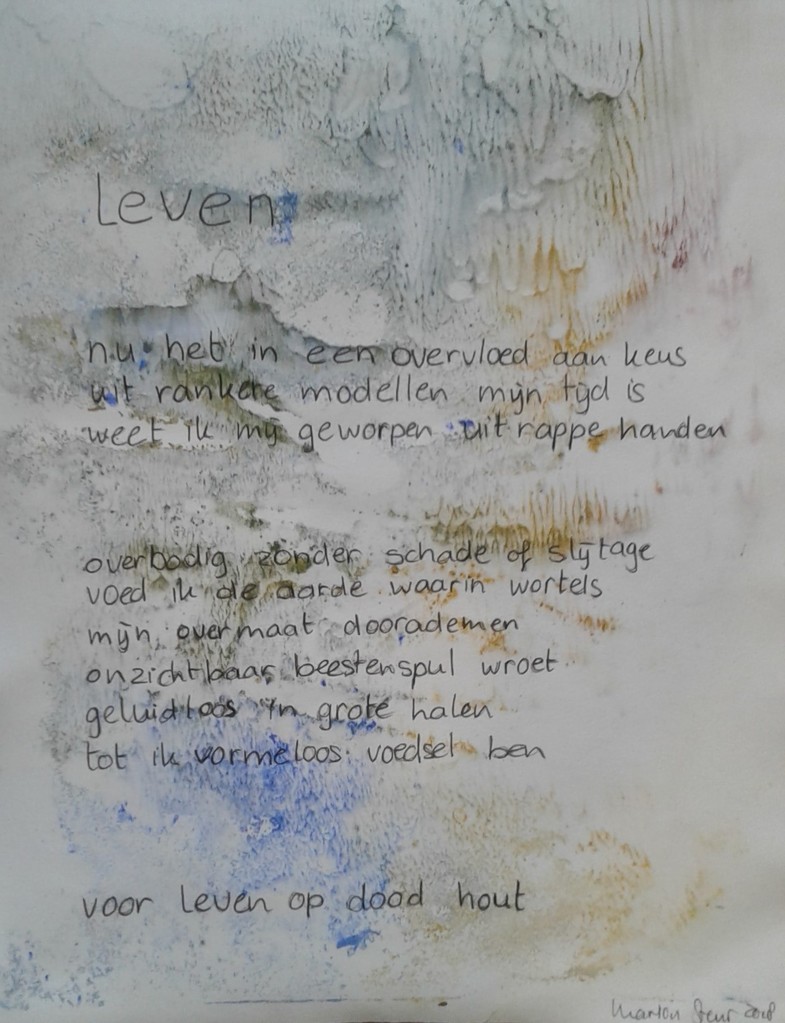 leven
nu het in een overvloed aan keus
uit rankere modellen mijn tijd is
weet ik mij geworpen uit rappe handen
overbodig zonder schade of slijtage
voed ik de aarde waarin wortels
mijn overmaat doorademen
onzichtbaar beestenspul wroet
geluidloos in grote halen
tot ik vormeloos voedsel ben
voor leven op dood hout
Marion 2018